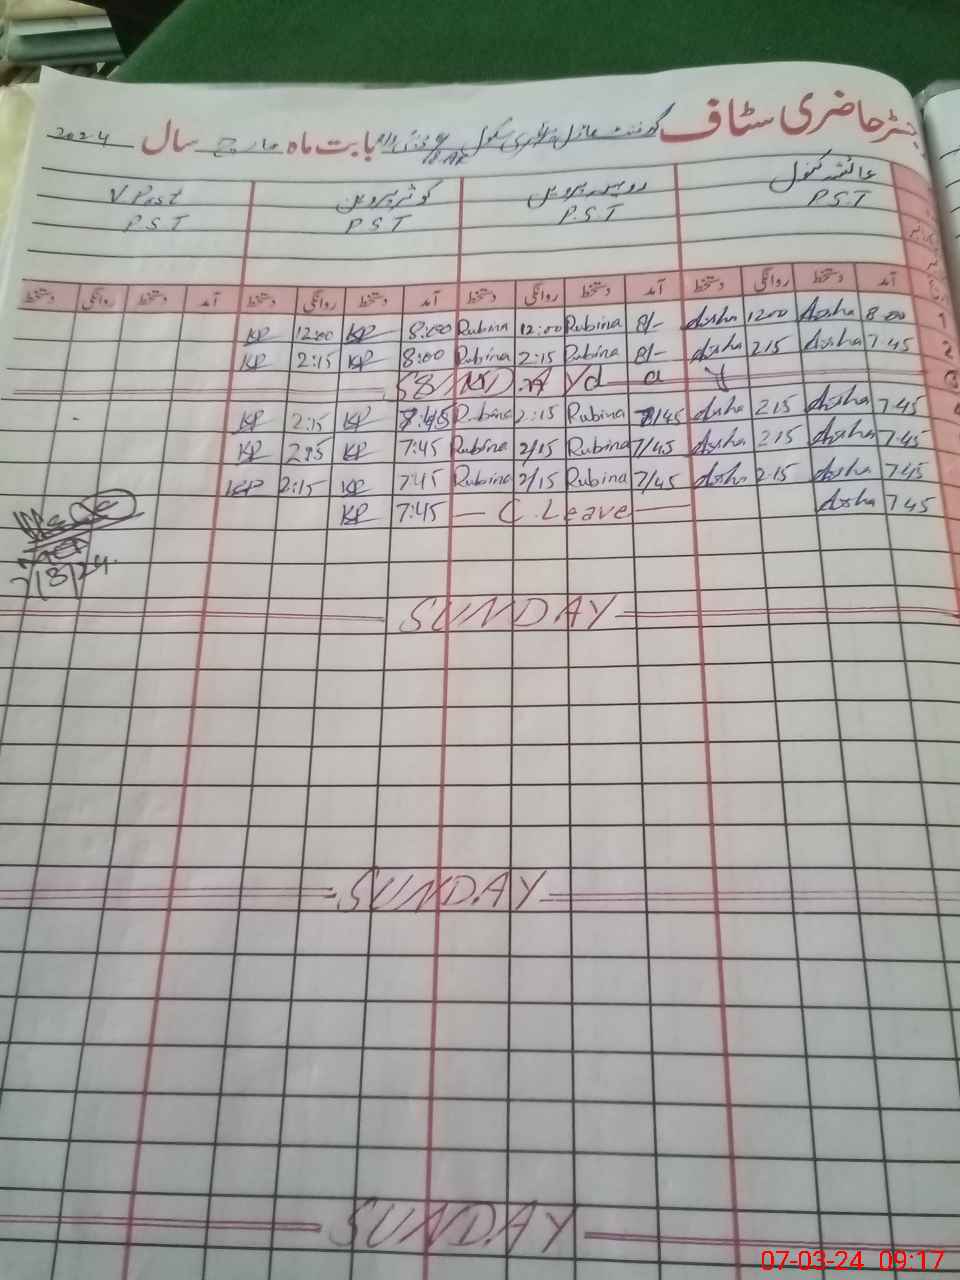 رجسٹر حاضری سٹاف گورنمنٹ ماڈل پرائمری سکول بابت ماہ مارچ سال 2024
عائشہ کنول روبینہ پروین کوثر پروین V Post
P.S.T P.S.T P S T P S T
آمد دستخط روانگی دستخط آمد دستخط روانگی دستخط آمد دستخط روانگی دستخط آمد دستخط روانگی دستخط
1 8:00 Aisha 12:00 Aisha 8/- Rubina 12:00 Rubina 8:00 KP 12:00 KP
2 7:45 Aisha 2:15 Aisha 8/- Rubina 2:15 Rubina 8:00 KP 2:15 KP
3
7:45 Aisha 2:15 Aisha 7/45 Rubina 2:15 Rubina 7:45 KP 2:15 KP
7:45 Aisha 2:15 Aisha 7/45 Rubina 2/15 Rubina 7:45 KP 2:15 KP
7:45 Aisha 2:15 Aisha 7/45 Rubina 2/15 Rubina 7:45 KP 2:15 KP
7:45 Aisha — C. Leave — 7:45 KP
7/3/24.
SUNDAY
SUNDAY
SUNDAY
07-03-24 09:17